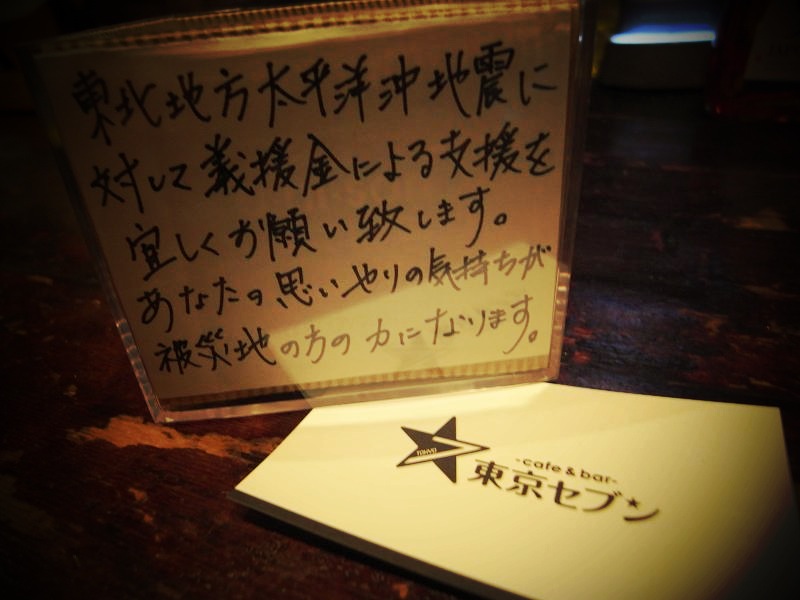 東北地方太平洋沖地震に
対して義援金による支援を
宜しくお願い致します。
あなたの思いやりの気持ちが
被災地の方の力になります。
TOKYO
-cafe & bar-
東京セブン